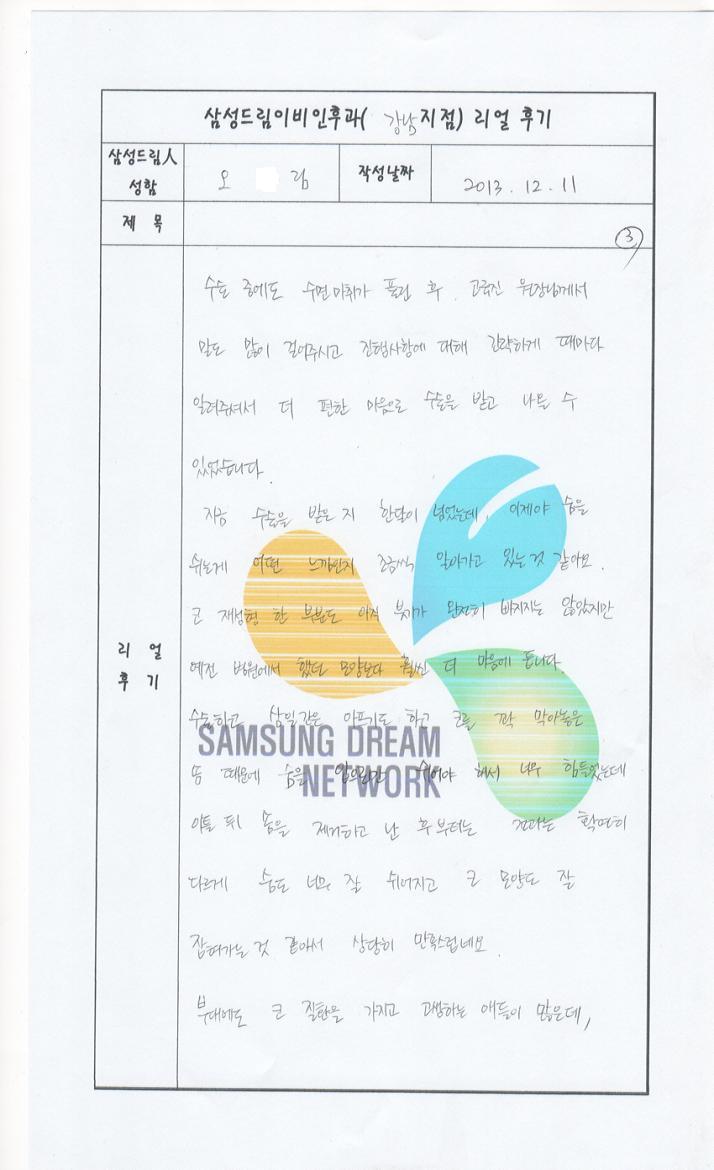 삼성드림이비인후과( 강남 지점) 리얼 후기
삼성드림人 성함
오 림
작성날짜
2013. 12. 11
제 목
③
리 얼 후 기
수술 중에도 수면마취가 풀린 후, 고국진 원장님께서
말도 많이 걸어주시고 진행사항에 대해 간략하게 때마다
알려주셔서 더 편한 마음으로 수술을 받고 나올 수
있었습니다.
지금 수술을 받은지 한달이 넘었는데, 이제야 숨을
쉬는게 어떤 느낌인지 조금씩 알아가고 있는것 같아요.
코 재성형 한 부분도 아직 붓기가 완전히 빠지지는 않았지만
예전 병원에서 했던 모양보다 훨씬 더 마음에 듭니다.
수술하고 삼일간은 아프기도 하고 코를 꽉 막아놓은
솜 때문에 숨을 입으로만 쉬어야 해서 너무 힘들었는데
이틀 뒤 솜을 제거하고 난 후부터는 전과는 확연히
다르게 숨도 너무 잘 쉬어지고 코 모양도 잘
잡혀가는 것 같아서 상당히 만족스럽네요.
부대에도 코 질환을 가지고 고생하는 애들이 많은데,
SAMSUNG DREAM
NETWORK